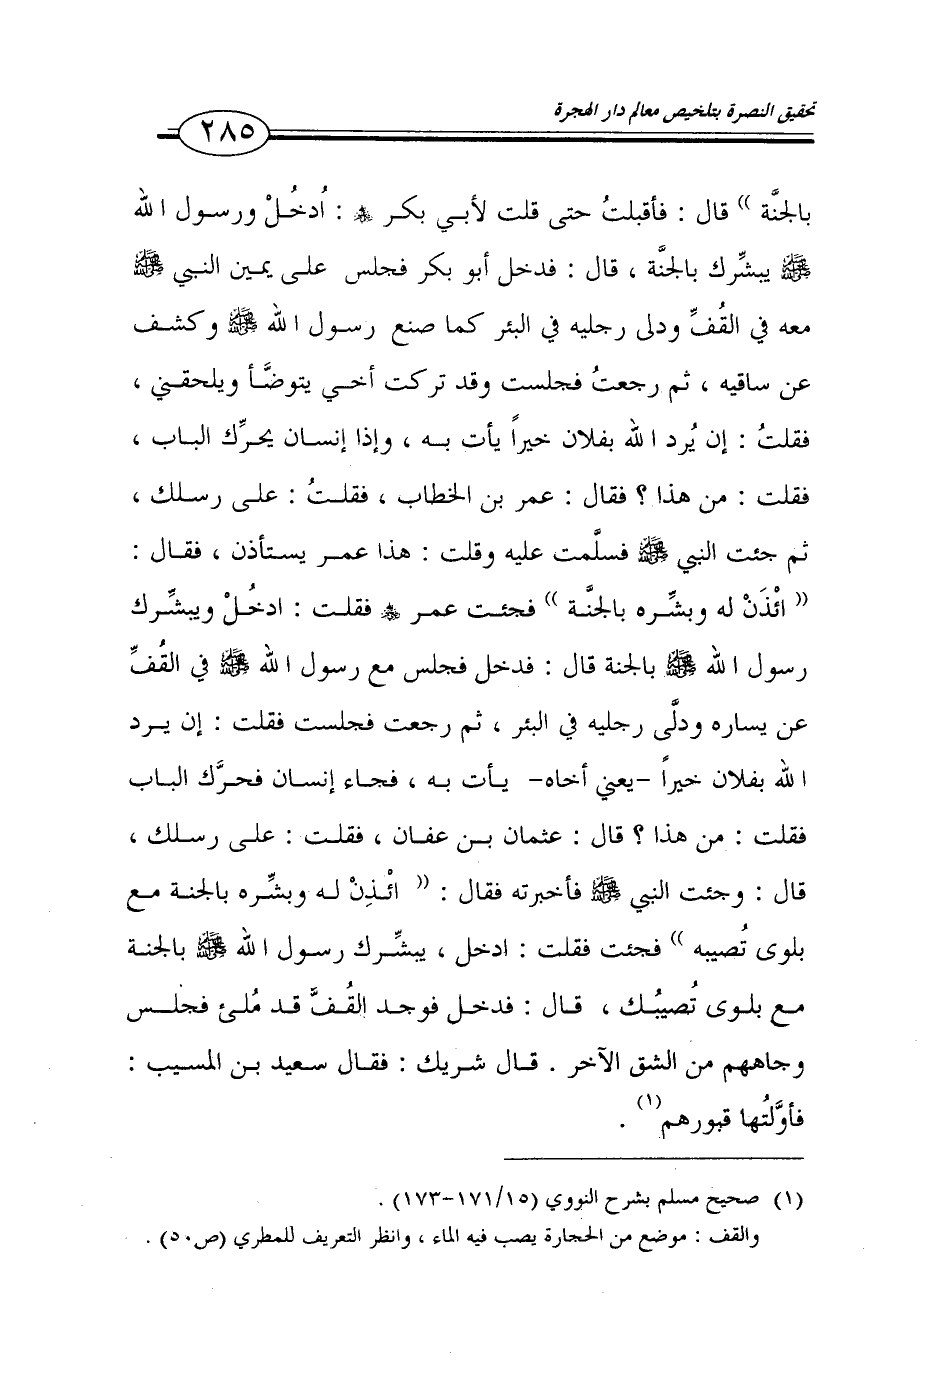 تحقيق النصرة بتلخيص معالم دار الهجرة
٢٨٥
بالجنَّة )) قال : فأقبلتُ حتى قلت لأبي بكر ﵁ : اُدخُلْ ورسول الله
ﷺ يبشِّرك بالجنَّة ، قال : فدخل أبو بكر فجلس على يمين النبي ﷺ
معه في القُفِّ ودلى رجليه في البئر كما صنع رسول الله ﷺ وكشف
عن ساقيه ، ثم رجعتُ فجلست وقد تركت أخي يتوضَّأ ويلحقني ،
فقلتُ : إن يُرد الله بفلان خيراً يأت به ، وإذا إنسان يحرِّك الباب ،
فقلت : من هذا ؟ فقال : عمر بن الخطاب ، فقلتُ : على رسلك ،
ثم جئت النبي ﷺ فسلَّمت عليه وقلت : هذا عمر يستأذن ، فقال :
(( ائْذَنْ له وبشِّره بالجنَّة )) فجئت عمر ﵁ فقلت : ادخُلْ ويبشِّرك
رسول الله ﷺ بالجنة قال : فدخل فجلس مع رسول الله ﷺ في القُفِّ
عن يساره ودلَّى رجليه في البئر ، ثم رجعت فجلست فقلت : إن يرد
الله بفلان خيراً -يعني أخاه- يأت به ، فجاء إنسان فحرَّك الباب
فقلت : من هذا ؟ قال : عثمان بن عفان ، فقلت : على رسلك ،
قال : وجئت النبي ﷺ فأخبرته فقال : (( ائْذِنْ له وبشِّره بالجنة مع
بلوى تُصيبه )) فجئت فقلت : ادخل ، يبشِّرك رسول الله ﷺ بالجنة
مع بلوى تُصيبُك ، قال : فدخل فوجد القُفَّ قد مُلئ فجلس
وجاههم من الشق الآخر . قال شريك : فقال سعيد بن المسيب :
فأوَّلتُها قبورهم(١) .
(١) صحيح مسلم بشرح النووي (١٧١/١٥-١٧٣) .
والقف : موضع من الحجارة يصب فيه الماء ، وانظر التعريف للمطري (ص٥٠) .